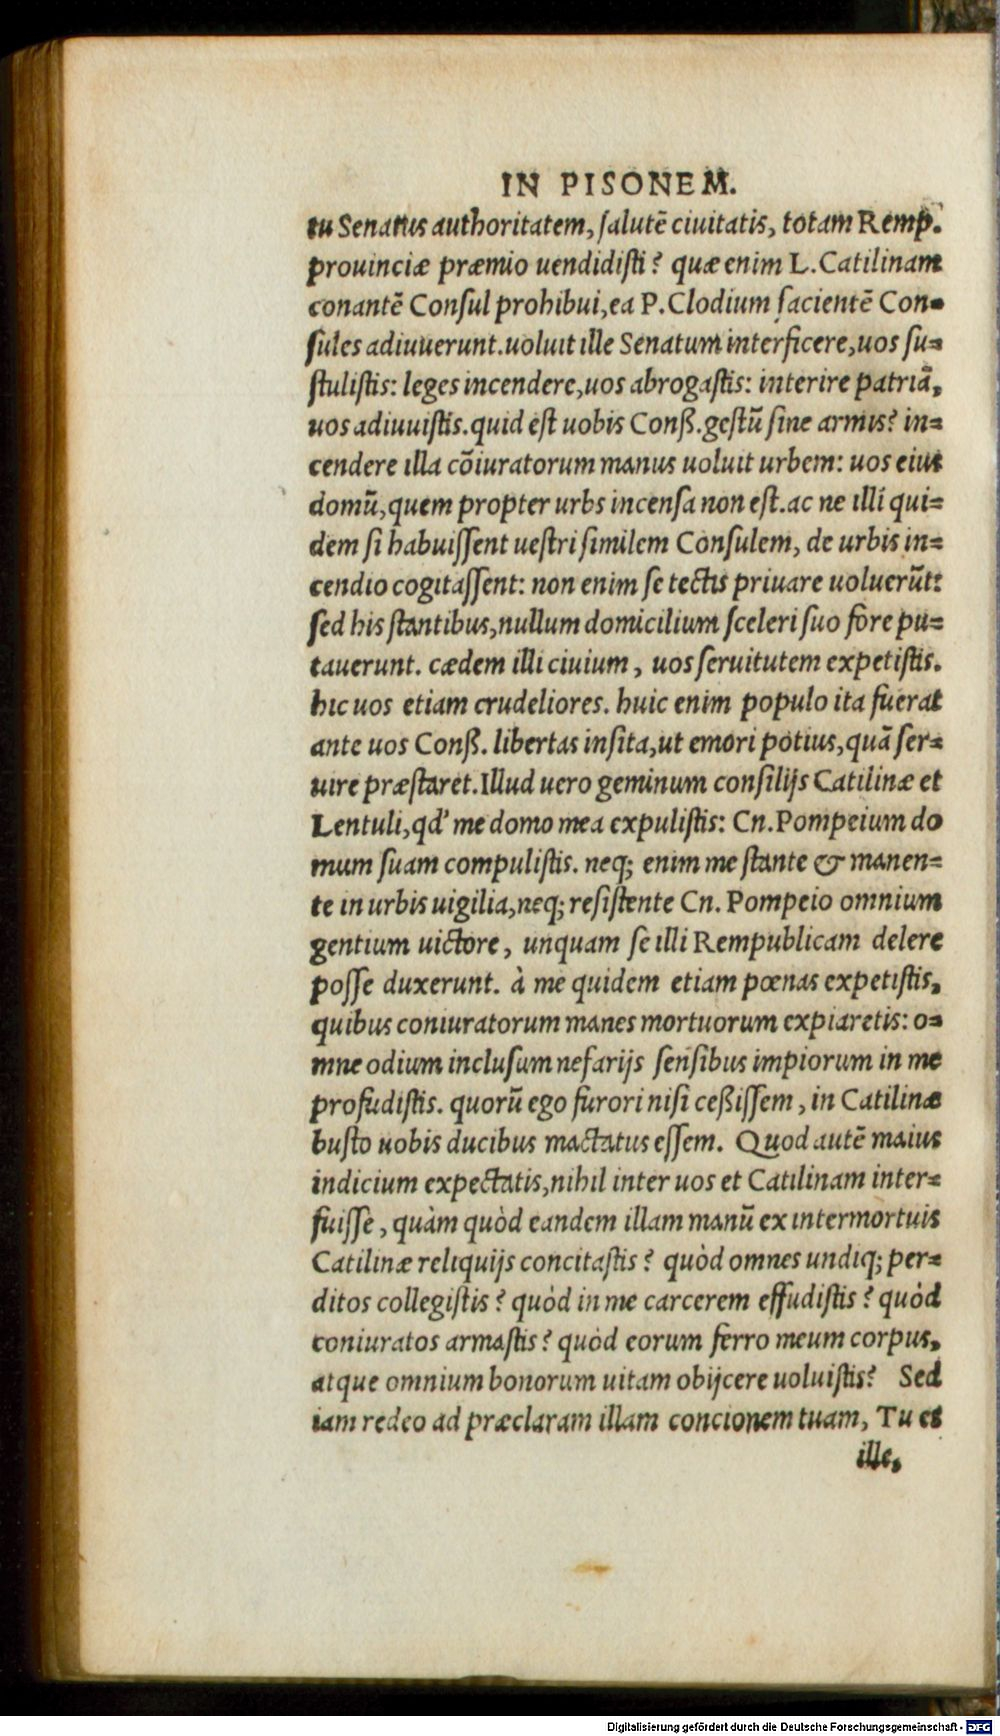 IN PISONEM.
tu Senatus authoritatem, ſalutē ciuitatis, totam Remp.
prouinciæ præmio uendidiſti? quæ enim L. Catilinam
conantē Conſul prohibui, ea P. Clodium facientē Con-
ſules adiuuerunt. uoluit ille Senatum interficere, uos ſu-
ſtuliſtis: leges incendere, uos abrogaſtis: interire patriā,
uos adiuuiſtis. quid eſt uobis Conſſ. geſtū ſine armis? in-
cendere illa cōiuratorum manus uoluit urbem: uos eius
domū, quem propter urbs incenſa non eſt. ac ne illi qui-
dem ſi habuiſſent ueſtri ſimilem Conſulem, de urbis in-
cendio cogitaſſent: non enim ſe tectis priuare uoluerūt:
ſed his ſtantibus, nullum domicilium ſceleri ſuo fore pu-
tauerunt. cædem illi ciuium, uos ſeruitutem expetiſtis.
hic uos etiam crudeliores. huic enim populo ita fuerat
ante uos Conſſ. libertas inſita, ut emori potius, quā ſer-
uire præſtaret. Illud uero geminum conſilijs Catilinæ et
Lentuli, qd' me domo mea expuliſtis: Cn. Pompeium do
mum ſuam compuliſtis. neq; enim me ſtante & manen-
te in urbis uigilia, neq; reſiſtente Cn. Pompeio omnium
gentium uictore, unquam ſe illi Rempublicam delere
poſſe duxerunt. à me quidem etiam pœnas expetiſtis,
quibus coniuratorum manes mortuorum expiaretis: o-
mne odium incluſum nefarijs ſenſibus impiorum in me
profudiſtis. quorū ego furori niſi ceſſiſſem, in Catilinæ
buſto uobis ducibus mactatus eſſem. Quod autē maius
indicium expectatis, nihil inter uos et Catilinam inter-
fuiſſe, quàm quòd eandem illam manū ex intermortuis
Catilinæ reliquijs concitaſtis? quòd omnes undiq; per-
ditos collegiſtis? quòd in me carcerem effudiſtis? quòd
coniuratos armaſtis? quòd eorum ferro meum corpus,
atque omnium bonorum uitam obijcere uoluiſtis? Sed
iam redeo ad præclaram illam concionem tuam, Tu es
ille,
Digitalisierung gefördert durch die Deutsche Forschungsgemeinschaft - DFG